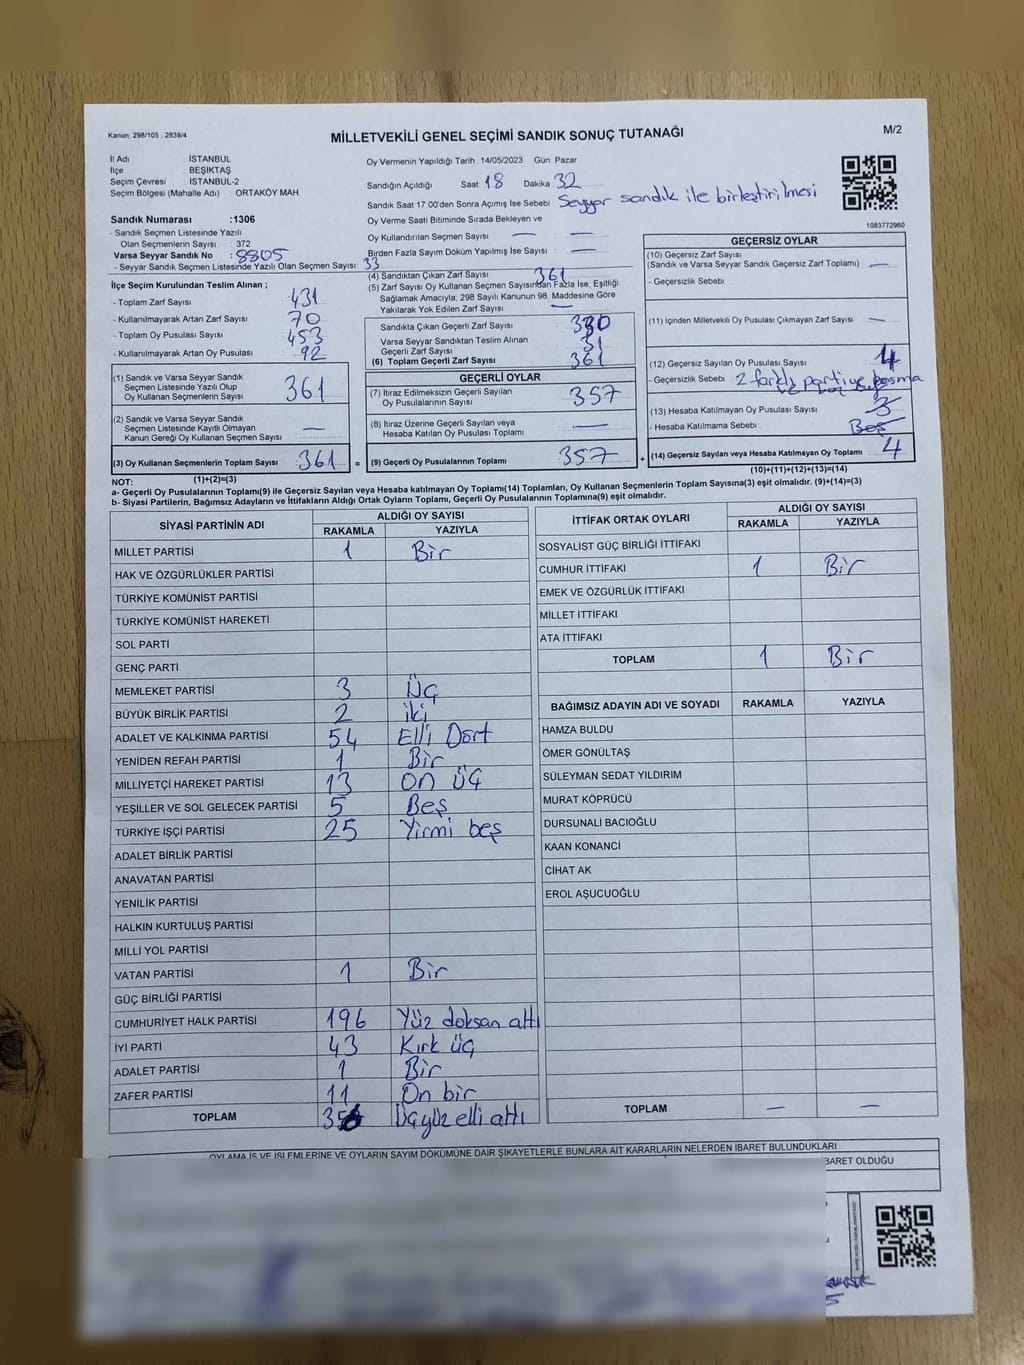 Kanun, 298/105 , 2839/4
MİLLETVEKİLİ GENEL SEÇİMİ SANDIK SONUÇ TUTANAĞI
M/2
İl Adı : İSTANBUL
İlçe : BEŞİKTAŞ
Seçim Çevresi : İSTANBUL-2
Seçim Bölgesi (Mahalle Adı) : ORTAKÖY MAH.
Sandık Numarası :1306
- Sandık Seçmen Listesinde Yazılı
Olan Seçmenlerin Sayısı : 372
Varsa Seyyar Sandık No : 8805
- Seyyar Sandık Seçmen Listesinde Yazılı Olan Seçmen Sayısı: 33
Oy Vermenin Yapıldığı Tarih :14/05/2023 Gün: Pazar
Sandığın Açıldığı Saat: 18 Dakika 32
Sandık Saat 17:00'den Sonra Açımış İse Sebebi : Seyyar sandık ile birleştirilmesi
Oy Verme Saati Bitiminde Sırada Bekleyen ve
Oy Kullandırılan Seçmen Sayısı — —
Birden Fazla Sayım Döküm Yapılmış İse Sayısı : —
1083772960
İlçe Seçim Kurulundan Teslim Alınan ;
- Toplam Zarf Sayısı : 431
- Kullanılmayarak Artan Zarf Sayısı : 70
- Toplam Oy Pusulası Sayısı : 453
- Kullanılmayarak Artan Oy Pusulası : 92
(1) Sandık ve Varsa Seyyar Sandık
Seçmen Listesinde Yazılı Olup
Oy Kullanan Seçmenlerin Sayısı 361
(2) Sandık ve Varsa Seyyar Sandık
Seçmen Listesinde Kayıtlı Olmayan
Kanun Gereği Oy Kullanan Seçmen Sayısı —
(3) Oy Kullanan Seçmenlerin Toplam Sayısı 361 =
(1)+(2)=(3)
(4) Sandıktan Çıkan Zarf Sayısı : 361
(5) Zarf Sayısı Oy Kullanan Seçmen Sayısından Fazla İse, Eşitliği
Sağlamak Amacıyla; 298 Sayılı Kanunun 98. Maddesine Göre
Yakılarak Yok Edilen Zarf Sayısı : —
Sandıkta Çıkan Geçerli Zarf Sayısı 330
Varsa Seyyar Sandıktan Teslim Alınan
Geçerli Zarf Sayısı 31
(6) Toplam Geçerli Zarf Sayısı 361
GEÇERLİ OYLAR
(7) İtiraz Edilmeksizin Geçerli Sayılan
Oy Pusulalarının Sayısı : 357
(8) İtiraz Üzerine Geçerli Sayılan veya
Hesaba Katılan Oy Pusulası Toplamı —
(9) Geçerli Oy Pusulalarının Toplamı 357 +
GEÇERSİZ OYLAR
(10) Geçersiz Zarf Sayısı
(Sandık ve Varsa Seyyar Sandık Geçersiz Zarf Toplamı) : —
- Geçersizlik Sebebi
(11) İçinden Milletvekili Oy Pusulası Çıkmayan Zarf Sayısı : —
(12) Geçersiz Sayılan Oy Pusulası Sayısı : 4
- Geçersizlik Sebebi : 2 farklı partiye basma
(13) Hesaba Katılmayan Oy Pusulası Sayısı : 3
- Hesaba Katılmama Sebebi : Beş
(14) Geçersiz Sayılan veya Hesaba Katılmayan Oy Toplamı : 4
(10)+(11)+(12)+(13)=(14)
NOT:
a- Geçerli Oy Pusulalarının Toplamı(9) ile Geçersiz Sayılan veya Hesaba Katılmayan Oy Toplamı(14) Toplamları, Oy Kullanan Seçmenlerin Toplam Sayısına(3) eşit olmalıdır. (9)+(14)=(3)
b- Siyasi Partilerin, Bağımsız Adayların ve İttifakların Aldığı Ortak Oyların Toplamı, Geçerli Oy Pusulalarının Toplamına(9) eşit olmalıdır.
SİYASİ PARTİNİN ADI ALDIĞI OY SAYISI
RAKAMLA YAZIYLA
MİLLET PARTİSİ 1 Bir
HAK VE ÖZGÜRLÜKLER PARTİSİ
TÜRKİYE KOMÜNİST PARTİSİ
TÜRKİYE KOMÜNİST HAREKETİ
SOL PARTİ
GENÇ PARTİ
MEMLEKET PARTİSİ 3 Üç
BÜYÜK BİRLİK PARTİSİ 2 iki
ADALET VE KALKINMA PARTİSİ 54 Elli Dört
YENİDEN REFAH PARTİSİ 1 Bir
MİLLİYETÇİ HAREKET PARTİSİ 13 on üç
YEŞİLLER VE SOL GELECEK PARTİSİ 5 Beş
TÜRKİYE İŞÇİ PARTİSİ 25 Yirmi beş
ADALET BİRLİK PARTİSİ
ANAVATAN PARTİSİ
YENİLİK PARTİSİ
HALKIN KURTULUŞ PARTİSİ
MİLLİ YOL PARTİSİ
VATAN PARTİSİ 1 Bir
GÜÇ BİRLİĞİ PARTİSİ
CUMHURİYET HALK PARTİSİ 196 Yüz doksan altı
İYİ PARTİ 43 Kırk üç
ADALET PARTİSİ 1 Bir
ZAFER PARTİSİ 11 On bir
TOPLAM 356 Üçyüz elli altı
İTTİFAK ORTAK OYLARI ALDIĞI OY SAYISI
RAKAMLA YAZIYLA
SOSYALİST GÜÇ BİRLİĞİ İTTİFAKI
CUMHUR İTTİFAKI 1 Bir
EMEK VE ÖZGÜRLÜK İTTİFAKI
MİLLET İTTİFAKI
ATA İTTİFAKI
TOPLAM 1 Bir
BAĞIMSIZ ADAYIN ADI VE SOYADI RAKAMLA YAZIYLA
HAMZA BULDU
ÖMER GÖNÜLTAŞ
SÜLEYMAN SEDAT YILDIRIM
MURAT KÖPRÜCÜ
DURSUNALİ BACIOĞLU
KAAN KONANCİ
CİHAT AK
EROL AŞUCUOĞLU
TOPLAM — —
OYLAMA İŞ VE İŞLEMLERİNE VE OYLARIN SAYIM DÖKÜMÜNE DAİR ŞİKAYETLERLE BUNLARA AİT KARARLARIN NELERDEN İBARET BULUNDUKLARI
BARET OLDUĞU